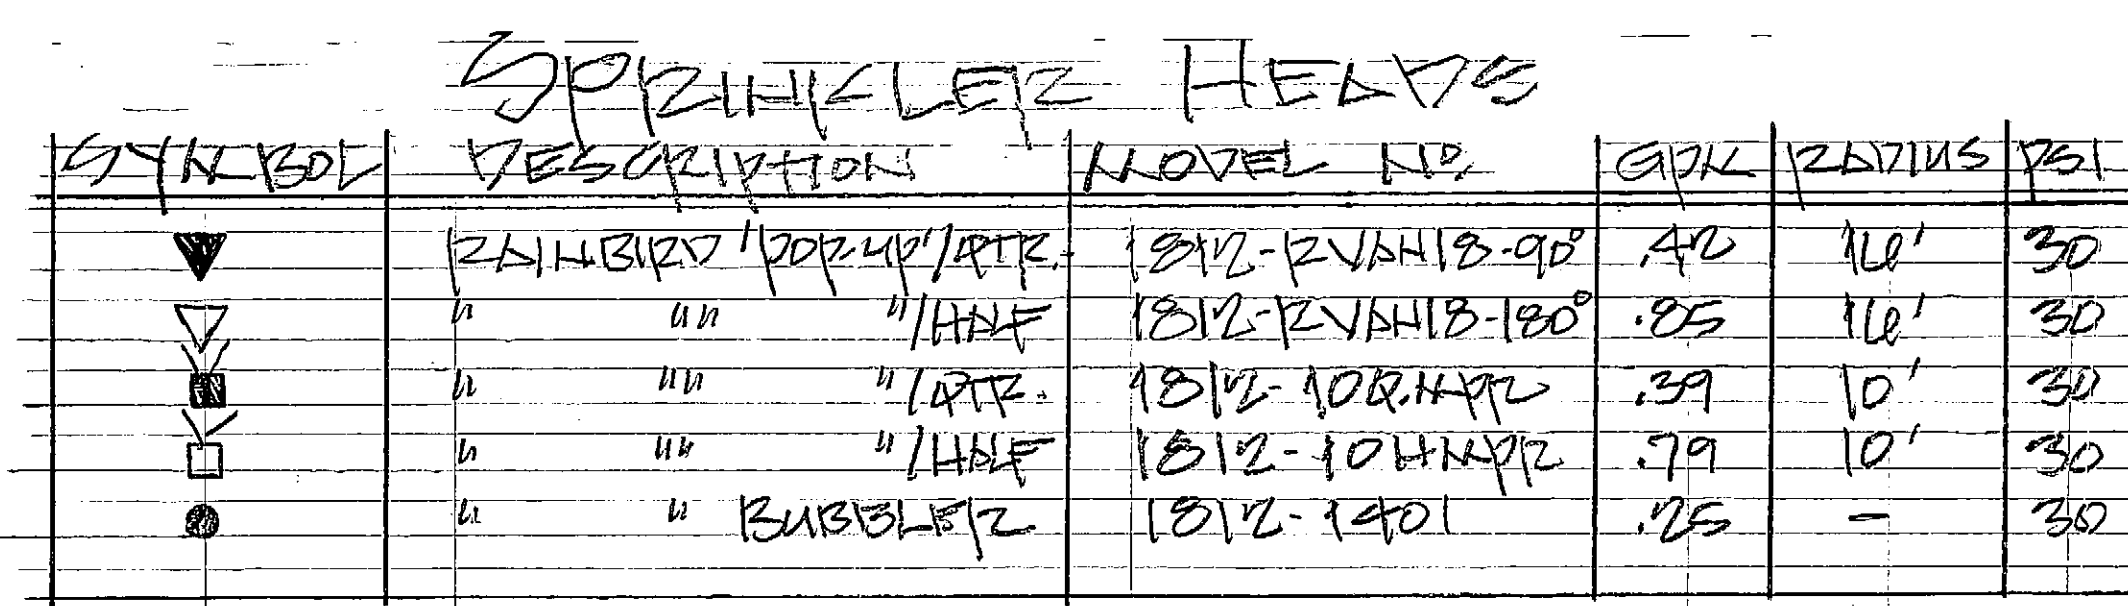 SPRINKLER HEADS
SYMBOL DESCRIPTION MODEL NO. GPM RADIUS PSI
RAINBIRD "POP-UP"/QTR. 1812-RVAN18-90° .42 16' 30
" " " "/HALF 1812-RVAN18-180° .85 16' 30
" " " "/QTR. 1812-10Q.MPR .39 10' 30
" " " "/HALF 1812-10HMPR .79 10' 30
" " BUBBLER 1812-1401 .25 - 30